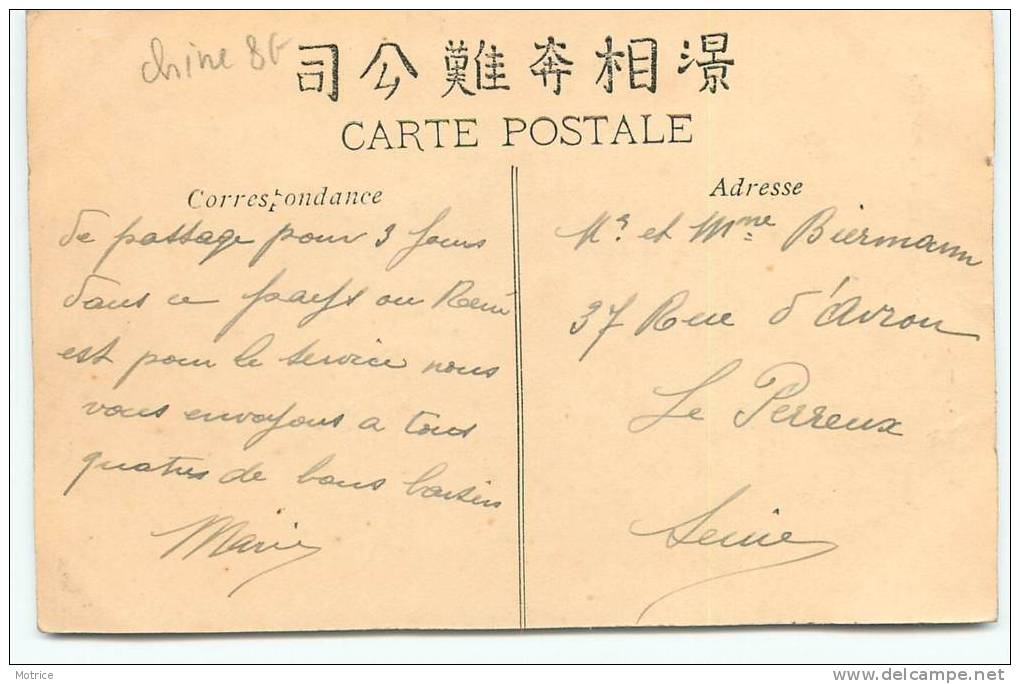 chine 8F
司公難奔相湶
CARTE POSTALE
Correspondance
de passage pour 3 jours
dans ce pays ou René
est pour le service nous
vous envoyons a tous
quatres de bons baisers
Marie
Adresse
Mr. et Mme Biermann
37 Rue d'Avron
Le Perreux
Seine
Motrice
delcampe.net